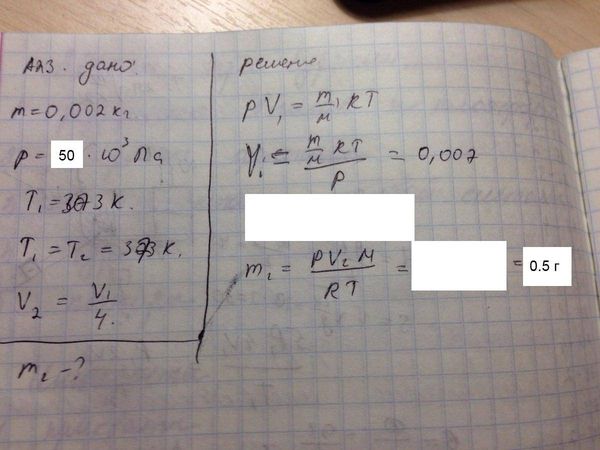 А23. дано:
m = 0,002 кг
p = 50 · 10³ Па
T₁ = 373 К.
T₁ = T₂ = 373 К.
V₂ = V₁/4.
m₂ - ?
решение
pV₁ = m/M RT
V₁ = (m/M RT)/p = 0,007
m₂ = (pV₂M)/(RT) = = 0.5 г